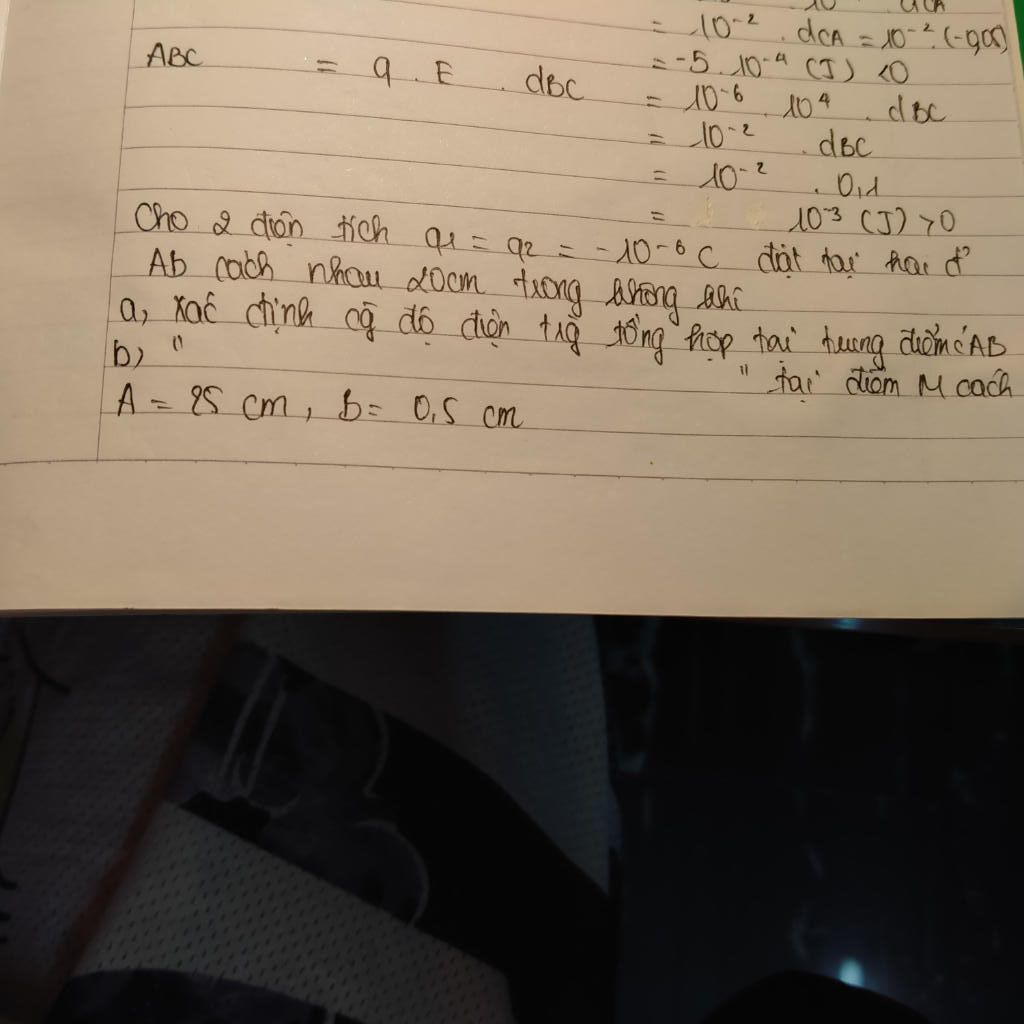 = 10⁻² . dCA = 10⁻² . (-0,05)
= -5 . 10⁻⁴ (J) < 0
ABC = q . E . dBC = 10⁻⁶ . 10⁴ . dBC
= 10⁻² . dBC
= 10⁻² . 0,1
= 10⁻³ (J) > 0
Cho 2 điện tích q1 = q2 = -10⁻⁶ C đặt tại hai đ'
AB cách nhau 20cm trong không khí
a, xác định cg độ điện trg tổng hợp tại trung điểm AB
b) " " tại điểm M cách
A = 25 cm, B = 0,5 cm